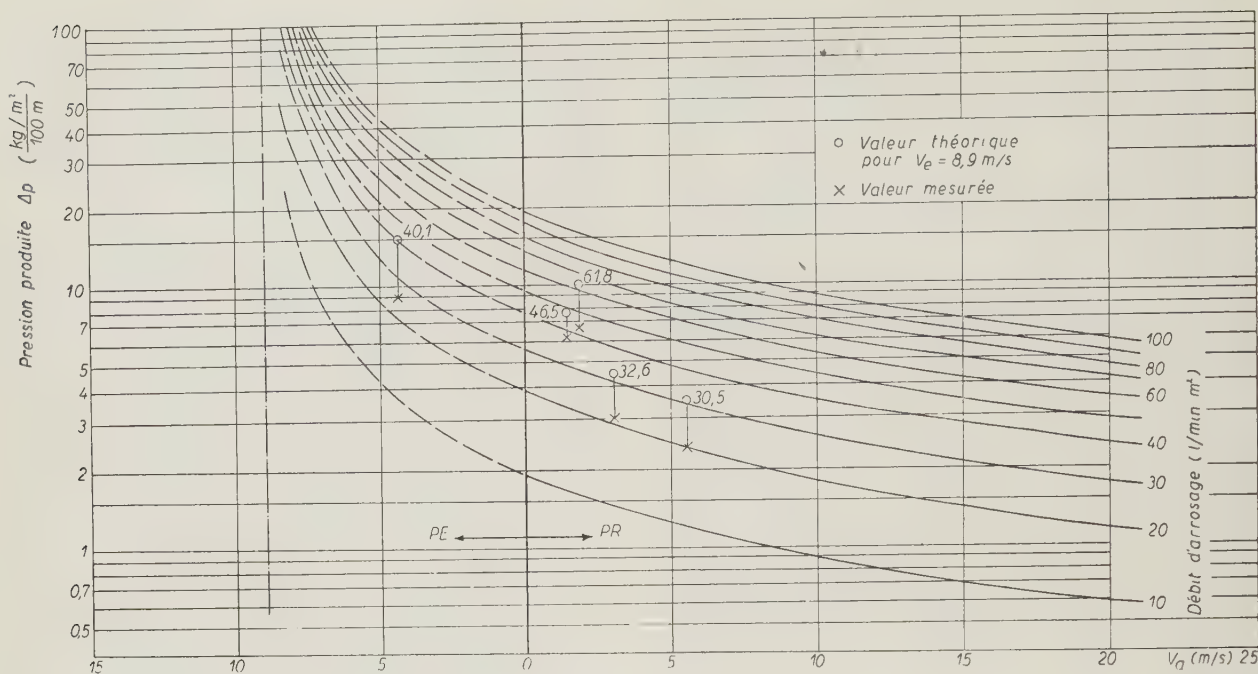 Pression produite Δp ( kg/m² / 100 m )
100
70
50
40
30
20
10
7
5
4
3
2
1
0,7
0,5
○ Valeur théorique
pour Ve = 8,9 m/s
× Valeur mesurée
40,1
61,8
46,5
32,6
30,5
PE ←→ PR
100
80
60
40
30
20
10
Débit d'arrosage (l/min m²)
15 10 5 0 5 10 15 20 Va (m/s) 25